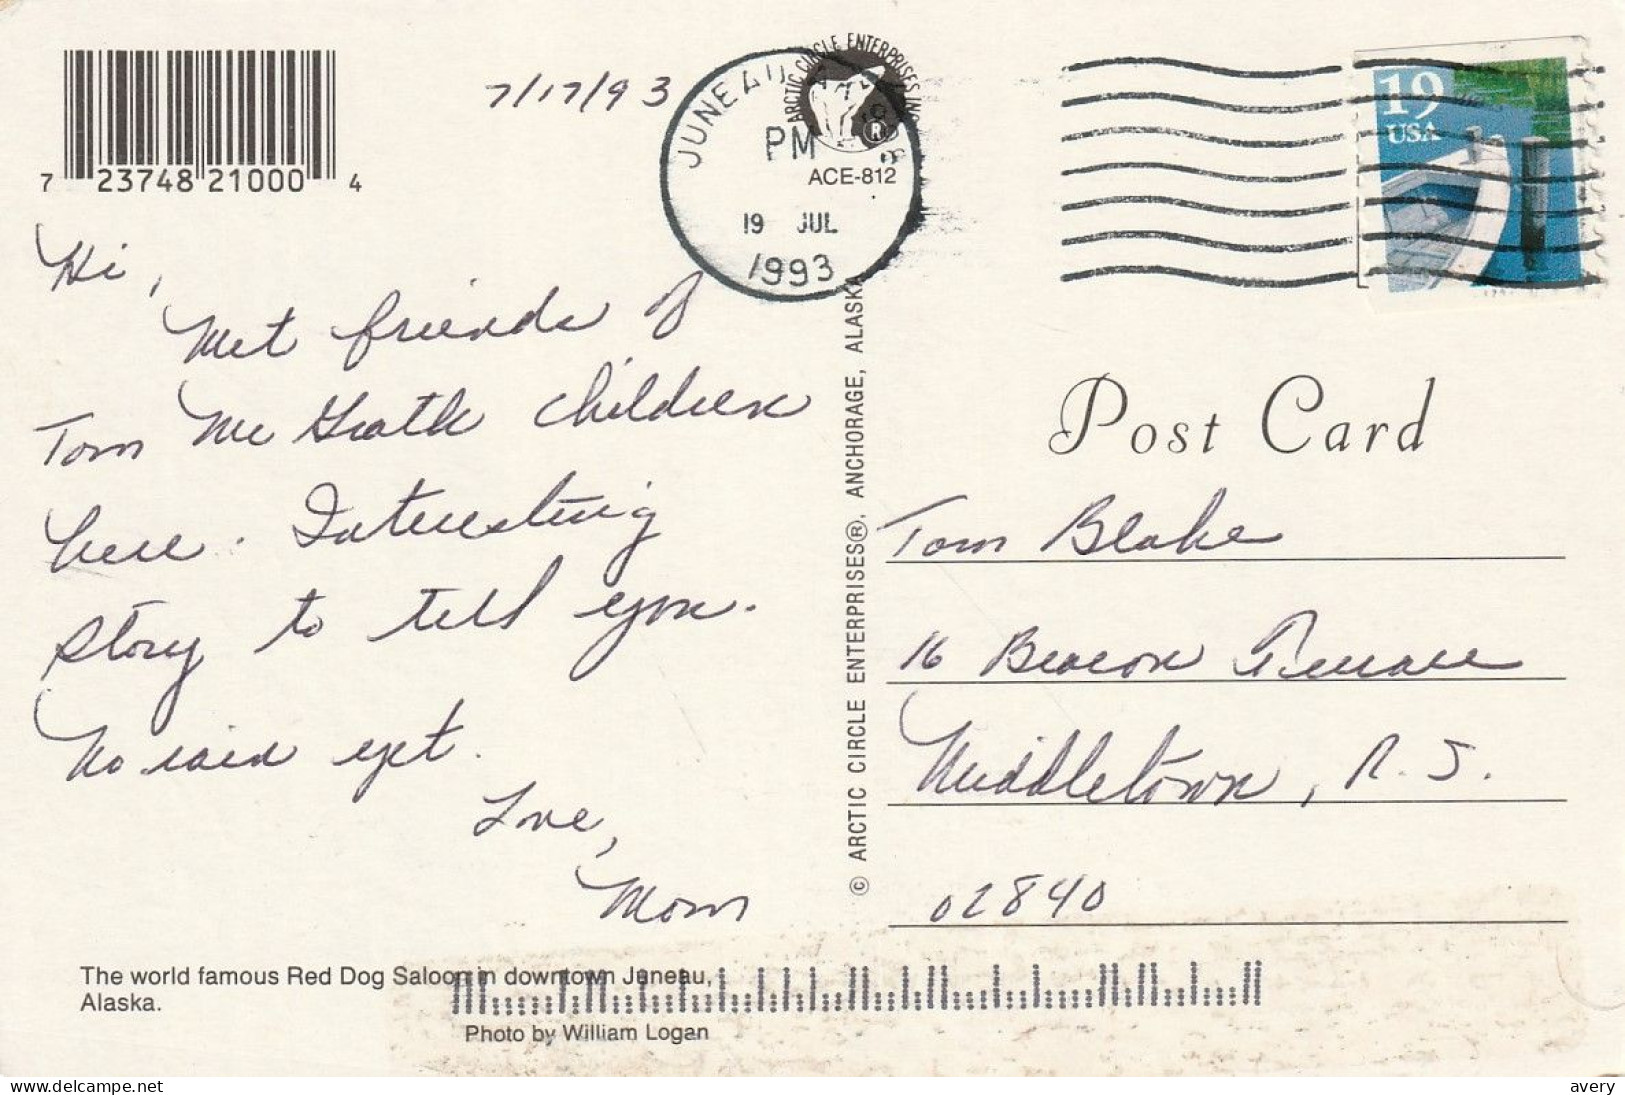 7 23748 21000 4
7/17/93
ARCTIC CIRCLE ENTERPRISES INC
®
ACE-812
JUNEAU
PM
19 JUL
1993
19
USA
Hi,
Met friends of
Tom McGrath children
here. Interesting
story to tell you.
No rain yet.
Love,
Mom
© ARCTIC CIRCLE ENTERPRISES®, ANCHORAGE, ALASKA
Post Card
Tom Blake
16 Beacon Terrace
Middletown, R.I.
02840
The world famous Red Dog Saloon in downtown Juneau,
Alaska.
Photo by William Logan
delcampe.net
avery